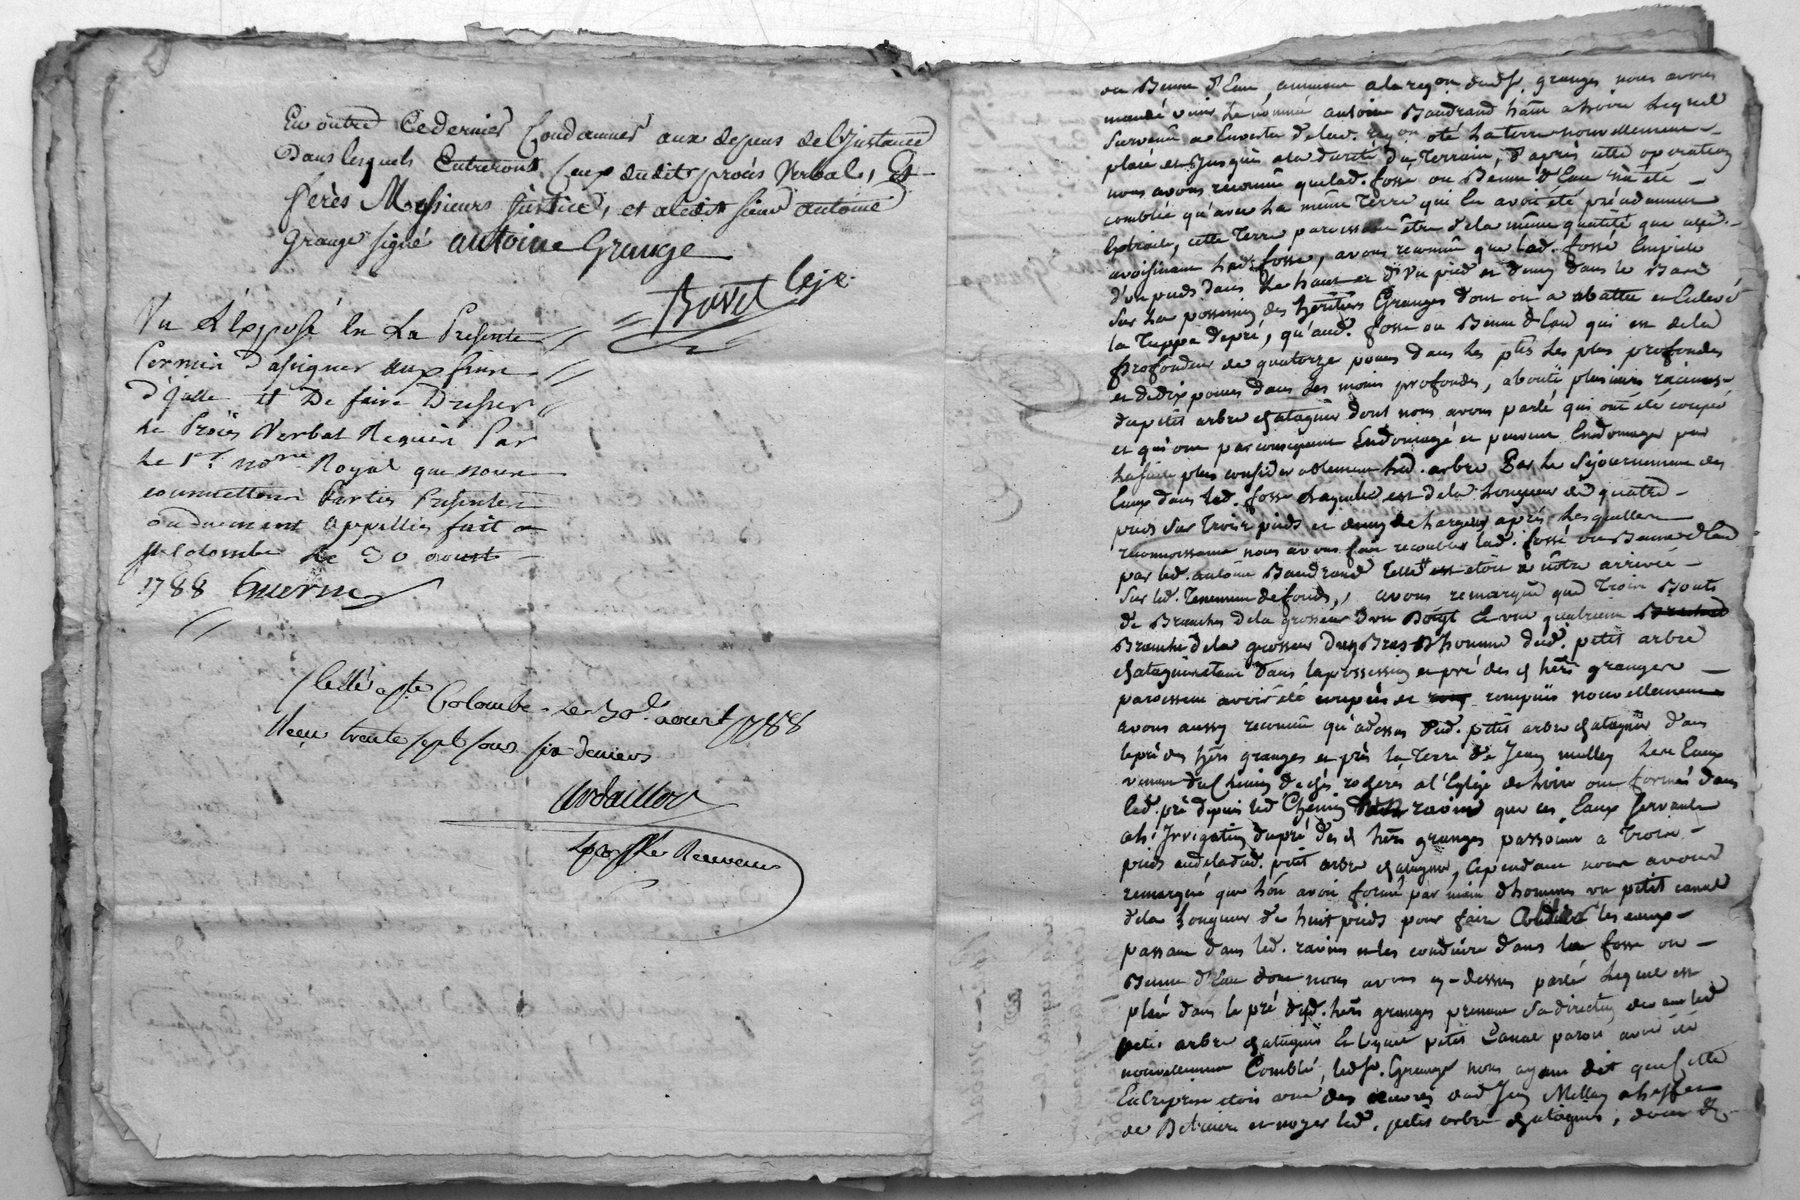 En outre ce dernier Condamner aux depens de l'Instance
Dans lesquels Entreront Ceux dudit procès Verbal, Et
ferès Messieurs Justice, et a ledit sieur antoine
Grange signé antoine Grange
Bovet
Vu L'éxposé En La Presente
Permis D'assigner aux fins
D'Jcelle Et De faire Dresser
Le Procès Verbal Requis Par
Le 1er. Royal que nous
commettons Parties Presentes
ou duement appellées fait a
Ste Colombe Le 30 aoust
1788
Scellé a Ste Colombe Le 30e. aoust 1788
Reçu trente sept sous six deniers
Ardaillon
ou Benne d'Eau, amenne a la reqon. dudsr. granges nous avons
mandé venir Le nommé antoine Baudrand hãnt a hoire Lequel
survenu a Ouverte de lad. reqon. oté La terre nouvellement
placé et Jusques a la dureté du Terrain, d'après cette operation
nous avons reconnu que lad. fosse ou Benne d'Eau n'a été
comblée qu'avec La même Terre qui En avoit été précédament
Extraite, cette Terre paroissant être de la même qualité que celle
avoisinant lad. fosse, avons reconnu que lad. fosse Empiete
d'un pied dans Le haut et d'Un pied et demy dans le Bas
sur La possession des héritiers Granges dont on a abattu et Enlevé
la Tuppe de pré, qu'aud. fosse ou Benne d'Eau qui est de la
profondeur de quatorze pouces dans Les ptes Les plus profondes
et de dix pouces dans Les moins profondes, aboutit plusieurs racines
du petit arbre chataigner dont nous avons parlé qui ont été coupé
et qui ont par consequent Endomagé et peuvent Endomager par
La suite plus considerablement led. arbre Par Le séjournement des
Eaux dans lad. fosse Laquelle est de la Longueur de quatre
pieds sur Trois pieds et demy de Largeur après Lesquelles
reconnoissance nous avons fait recombler lad. fosse ou Benne d'Eau
par led. antoine Baudrand Telle est etoit a nôtre arrivée
sur led. Tenement de fonds, avons remarqué que Trois Bouts
de Branches de la grosseur d'un Doigt Et une quatrieme
Branche de la grosseur d'un Bras d'homme dud. petit arbre
chataigner etant dans la possession et pré des d. hers. granges
paroissent avoir été coupées et rompuës nouvellement
avons aussy reconnu qu'adessus dud. petit arbre chataigner dans
le pré des hers granges et près la Terre de Jean mulley Les Eaux
venant du Chemin de chés rogeres a l'Eglise de hoire ont formé dans
led. pré depuis led Chemin ravine que ces Eaux servant
a L'Irrigation du pré des d hers granges passoient a Trois
pieds audela dud. petit arbre chataigner, Cependant nous avons
remarqué que L'on avoit formé par main d'hommes un petit canal
de la Longueur de huit pieds pour faire les eaux
passant dans led. ravine et les conduire dans la fosse ou
Benne d'Eau dont nous avons cy-dessus parlé Lequel est
placé dans le pré desd. hers granges prenant sa direction
petit arbre chataigner Et lequel petit Canal paroit avoir été
nouvellement Comblé, ledsr. Grange nous ayant dit que Cette
Entreprise etoit une des œuvres dud Jean Mullay a l'effet
de Detruire et noyer led. petit arbre chataigner,